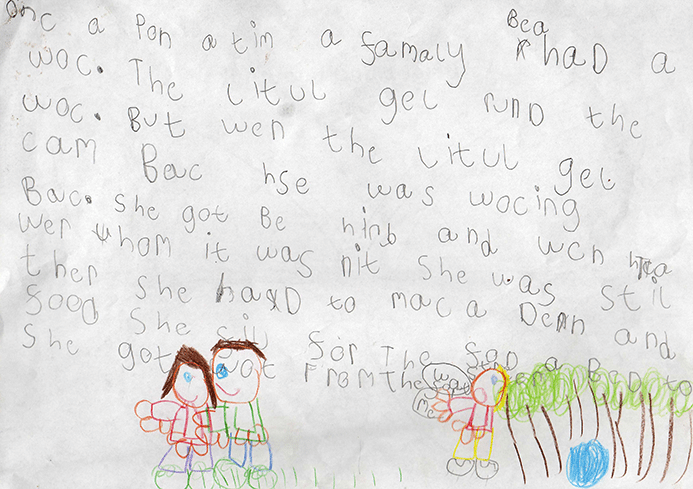 Onc a Pon a tim a famaly Bea had a
woc. The Litul gel rund the
woc. But wen the Litul gel
cam Bac hse was wocing
Bac. She got Be hinb and wen
wer whom it was nit She was stil
ther She haD to mac a Denn and
She for The a BeD to
She got wot FROM the
wat
me